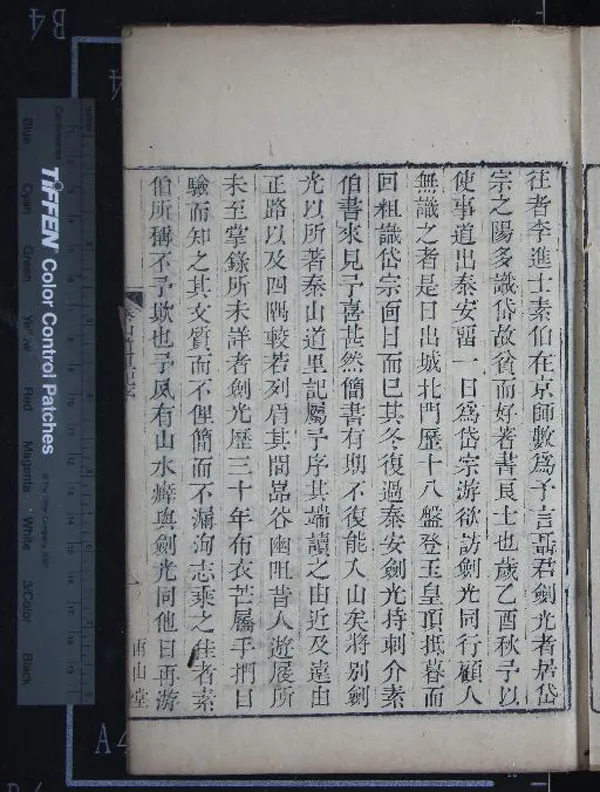 往者李進士素伯在京師數爲予言聶君劍光者居岱
宗之陽多識岱故貧而好著書良士也歲乙酉秋予以
使事道出泰安畱一日爲岱宗游欲訪劍光同行顧人
無識之者是日出城北門歷十八盤登玉皇頂抵暮而
回粗識岱宗面目而已其冬復過泰安劍光持刺介素
伯書來見予喜甚然簡書有期不復能入山矣將別劍
光以所著泰山道里記屬予序其端讀之由近及遠由
正路以及四隅較若列眉其閒嵓谷幽阻昔人遊屐所
未至掌錄所未詳者劍光歷三十年布衣芒屩手捫目
驗而知之其文質而不俚簡而不漏洵志乘之佳者素
伯所稱不予欺也予夙有山水癖與劍光同他日再游
泰山道里記
一
雨山堂
TIFFEN Color Control Patches
© The Tiffen Company
Centimetres
Blue
Cyan
Green
Yellow
Red
Magenta
White
3/Color
Black
B4
A4